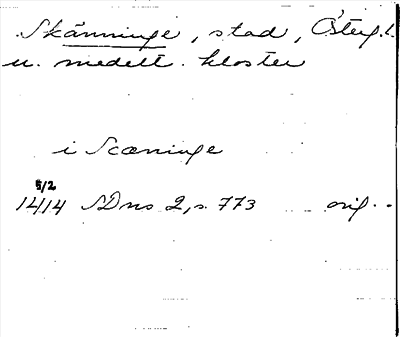 Skänninge, stad, Österg.l.
u. medelt. kloster
i Scæninge
5/2
1414 SDns 2, s. 773 orig.